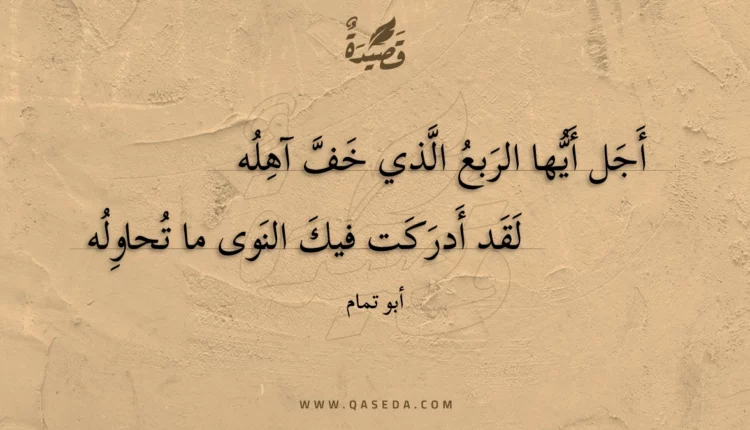 قَصِيدَةٌ
أَجَل أَيُّها الرَبعُ الَّذي خَفَّ آهِلُه
لَقَد أَدرَكَت فيكَ النَوى ما تُحاوِلُه
أبو تمام
WWW.QASEDA.COM